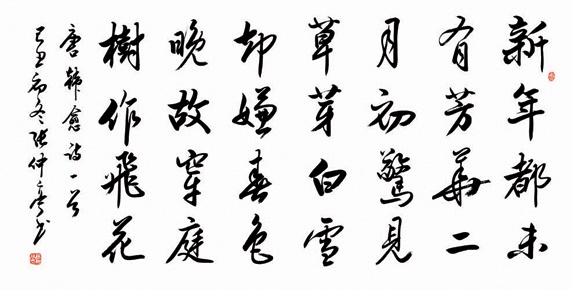 新年都未
有芳華二
月初驚見
草芽白雪
却嫌春色
晚故穿庭
樹作飛花
唐韓愈詩一首
己丑初冬張仲亭書